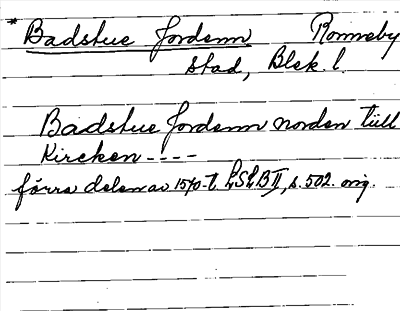 * Badstue Jordenn Ronneby
stad, Blek. l.
Badstue Jordenn norden till
Kircken ----
förra delen av 1570-t. LSLB II, s. 502. orig.